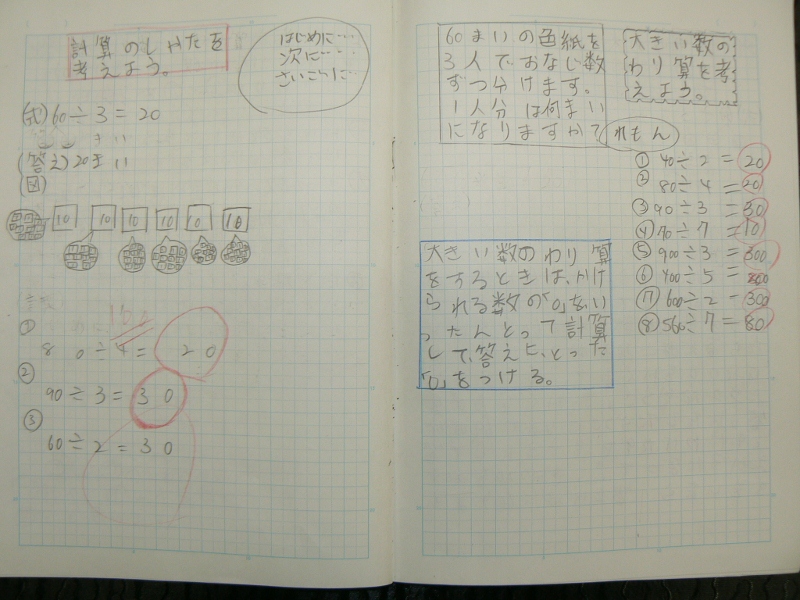 計算のしかたを
考えよう。
はじめに…
次に…
さいごに…
(式)60÷3=20
まい
(答え)20まい
(図)
10 10 10 10 10 10
①
80÷4=20
②
90÷3=30
③
60÷2=30
60まいの色紙を
3人でおなじ数
ずつ分けます。
1人分は何まい
になりますか?
大きい数の
わり算を考
えよう。
れもん
①40÷2=20
②80÷4=20
③90÷3=30
④70÷7=10
⑤900÷3=300
⑥400÷5=
⑦600÷2=300
⑧560÷7=80
大きい数のわり算
をするときは、かけ
られる数の「0」を、い
ったんとって計算
して、答えに、とった
「0」をつける。